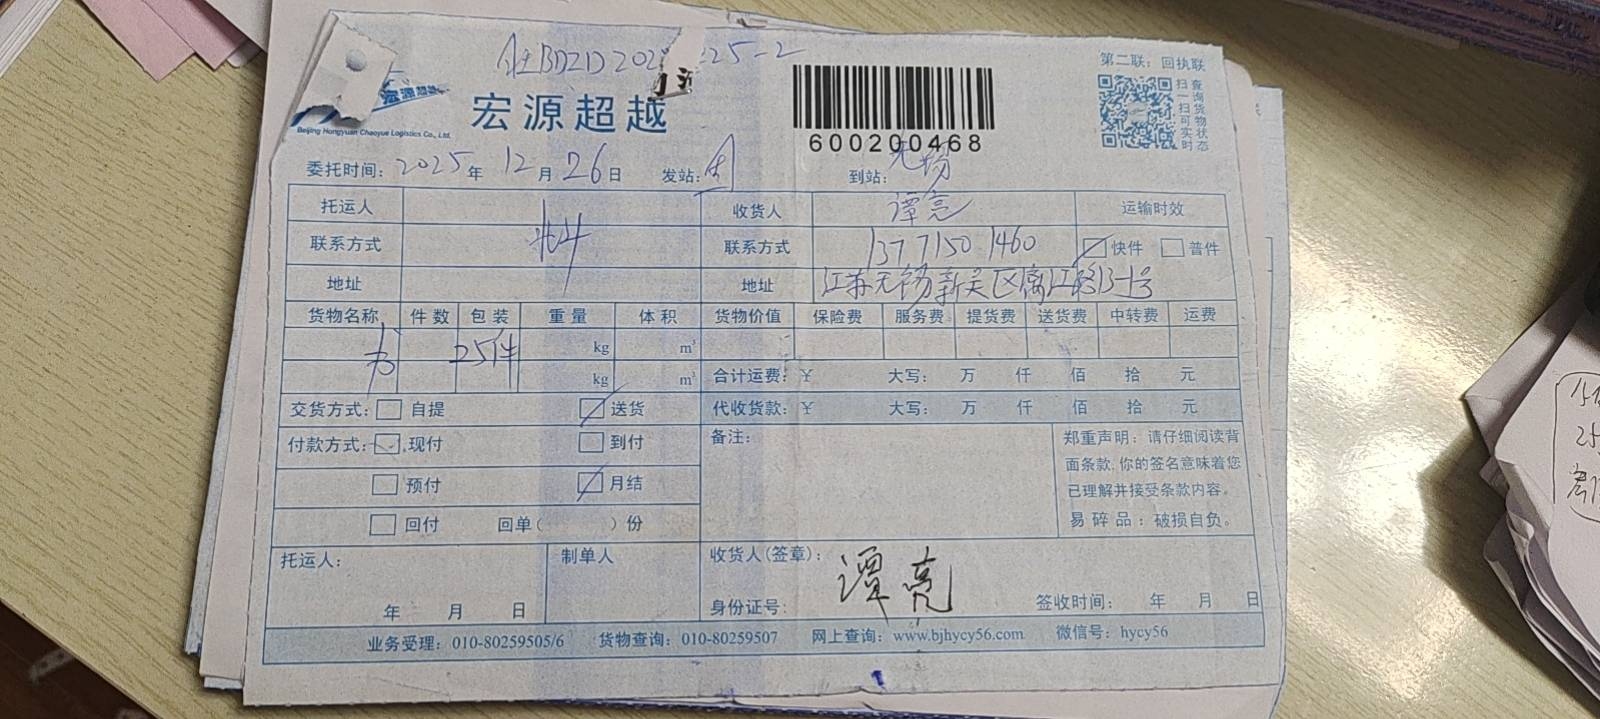 第二联：回执联
宏源超越
宏源超越
Beijing Hongyuan Chaoyue Logistics Co., Ltd.
600200468
扫查
一询
扫货
可物
实状
时态
委托时间：2025年12月26日 发站： 到站：无锡
托运人 收货人 谭亮 运输时效
联系方式 联系方式 137 7150 1460 快件 普件
地址 地址 江苏无锡新吴区 13-1号
货物名称 件数 包装 重量 体积 货物价值 保险费 服务费 提货费 送货费 中转费 运费
书 25件 kg m³
kg m³ 合计运费：¥ 大写： 万 仟 佰 拾 元
交货方式： 自提 送货 代收货款：¥ 大写： 万 仟 佰 拾 元
付款方式： 现付 到付 备注：
预付 月结
回付 回单（ ）份
郑重声明：请仔细阅读背
面条款，你的签名意味着您
已理解并接受条款内容。
易碎品：破损自负。
托运人： 制单人 收货人(签章)：谭亮
年 月 日 身份证号： 签收时间： 年 月 日
业务受理：010-80259505/6 货物查询：010-80259507 网上查询：www.bjhycy56.com 微信号：hycy56